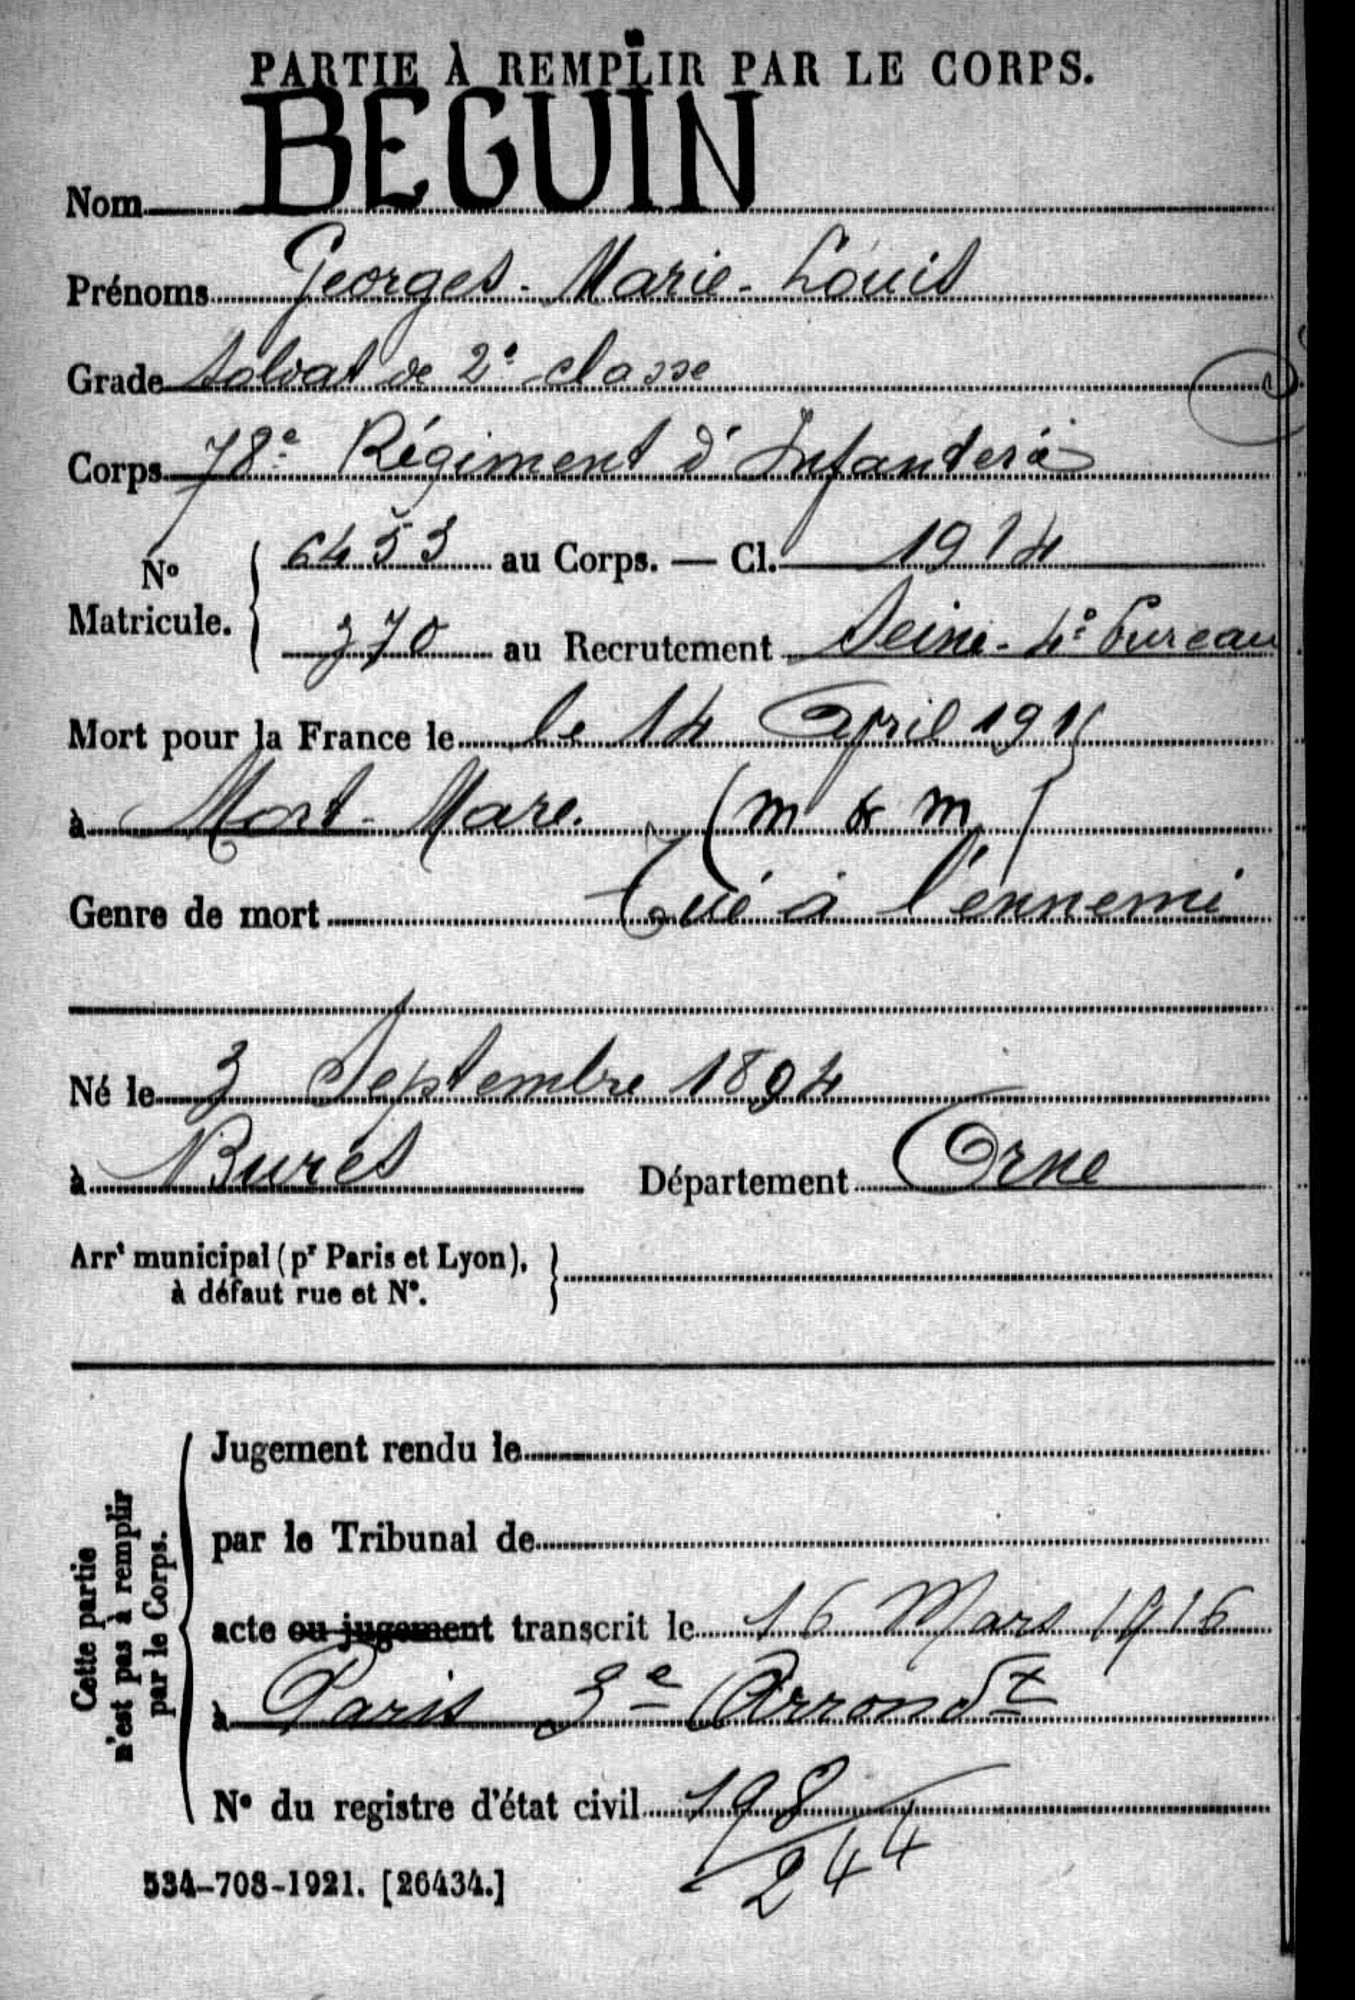 PARTIE À REMPLIR PAR LE CORPS.
Nom BEGUIN
Prénoms Georges - Marie - Louis
Grade Soldat de 2e classe
Corps 78e Régiment d'Infanterie
N° Matricule. { 6453 au Corps. — Cl. 1914
370 au Recrutement Seine - 4e bureau
Mort pour la France le le 14 april 1915
à Mort - Mare. (M & M)
Genre de mort Tué à l'ennemi
Né le 3 Septembre 1894
à Bures Département Orne
Arrt municipal (pr Paris et Lyon), }
à défaut rue et N°.
Cette partie n'est pas à remplir par le Corps.
Jugement rendu le
par le Tribunal de
acte ou jugement transcrit le 16 Mars 1916
à Paris 3e Arrondt
N° du registre d'état civil 198/244
534-708-1921. [26434.]